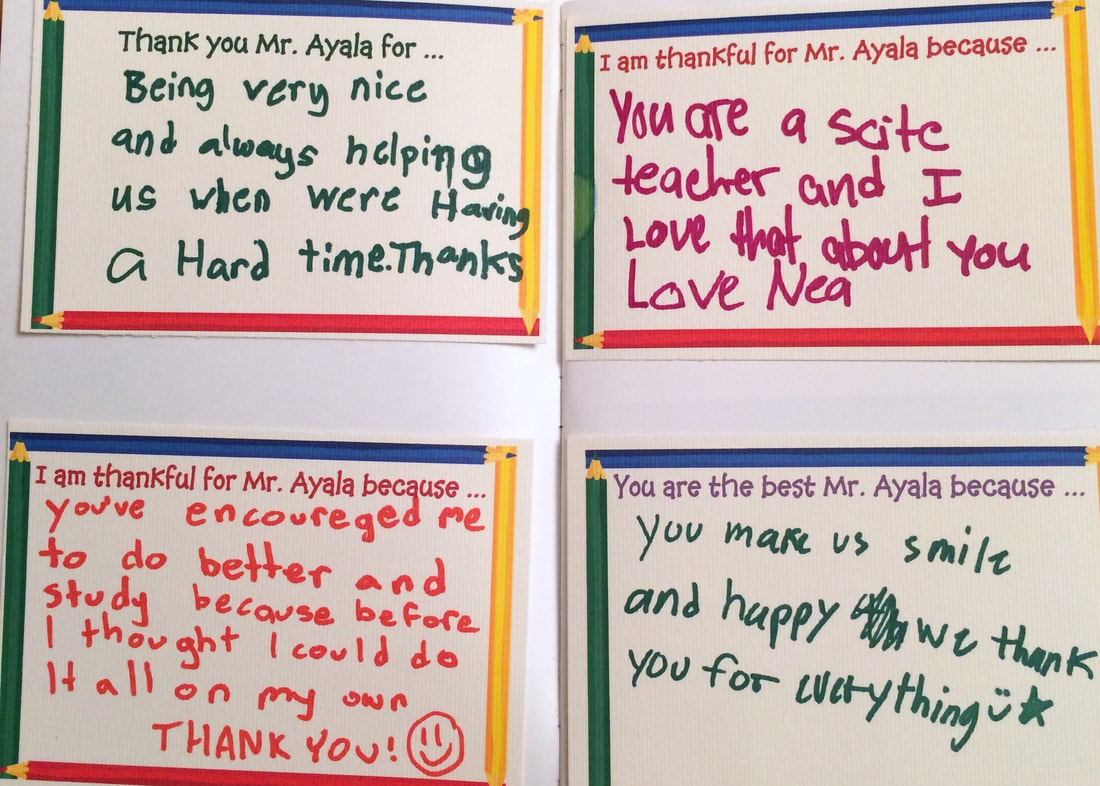 Thank you Mr. Ayala for ...
Being very nice
and always helping
us when were Having
a Hard time.Thanks
I am thankful for Mr. Ayala because ...
You are a scite
teacher and I
Love that about you
Love Nea
I am thankful for Mr. Ayala because ...
you've encoureged me
to do better and
study because before
I thought I could do
It all on my own
THANK YOU!
You are the best Mr. Ayala because ...
you make us smile
and happy we thank
you for everything